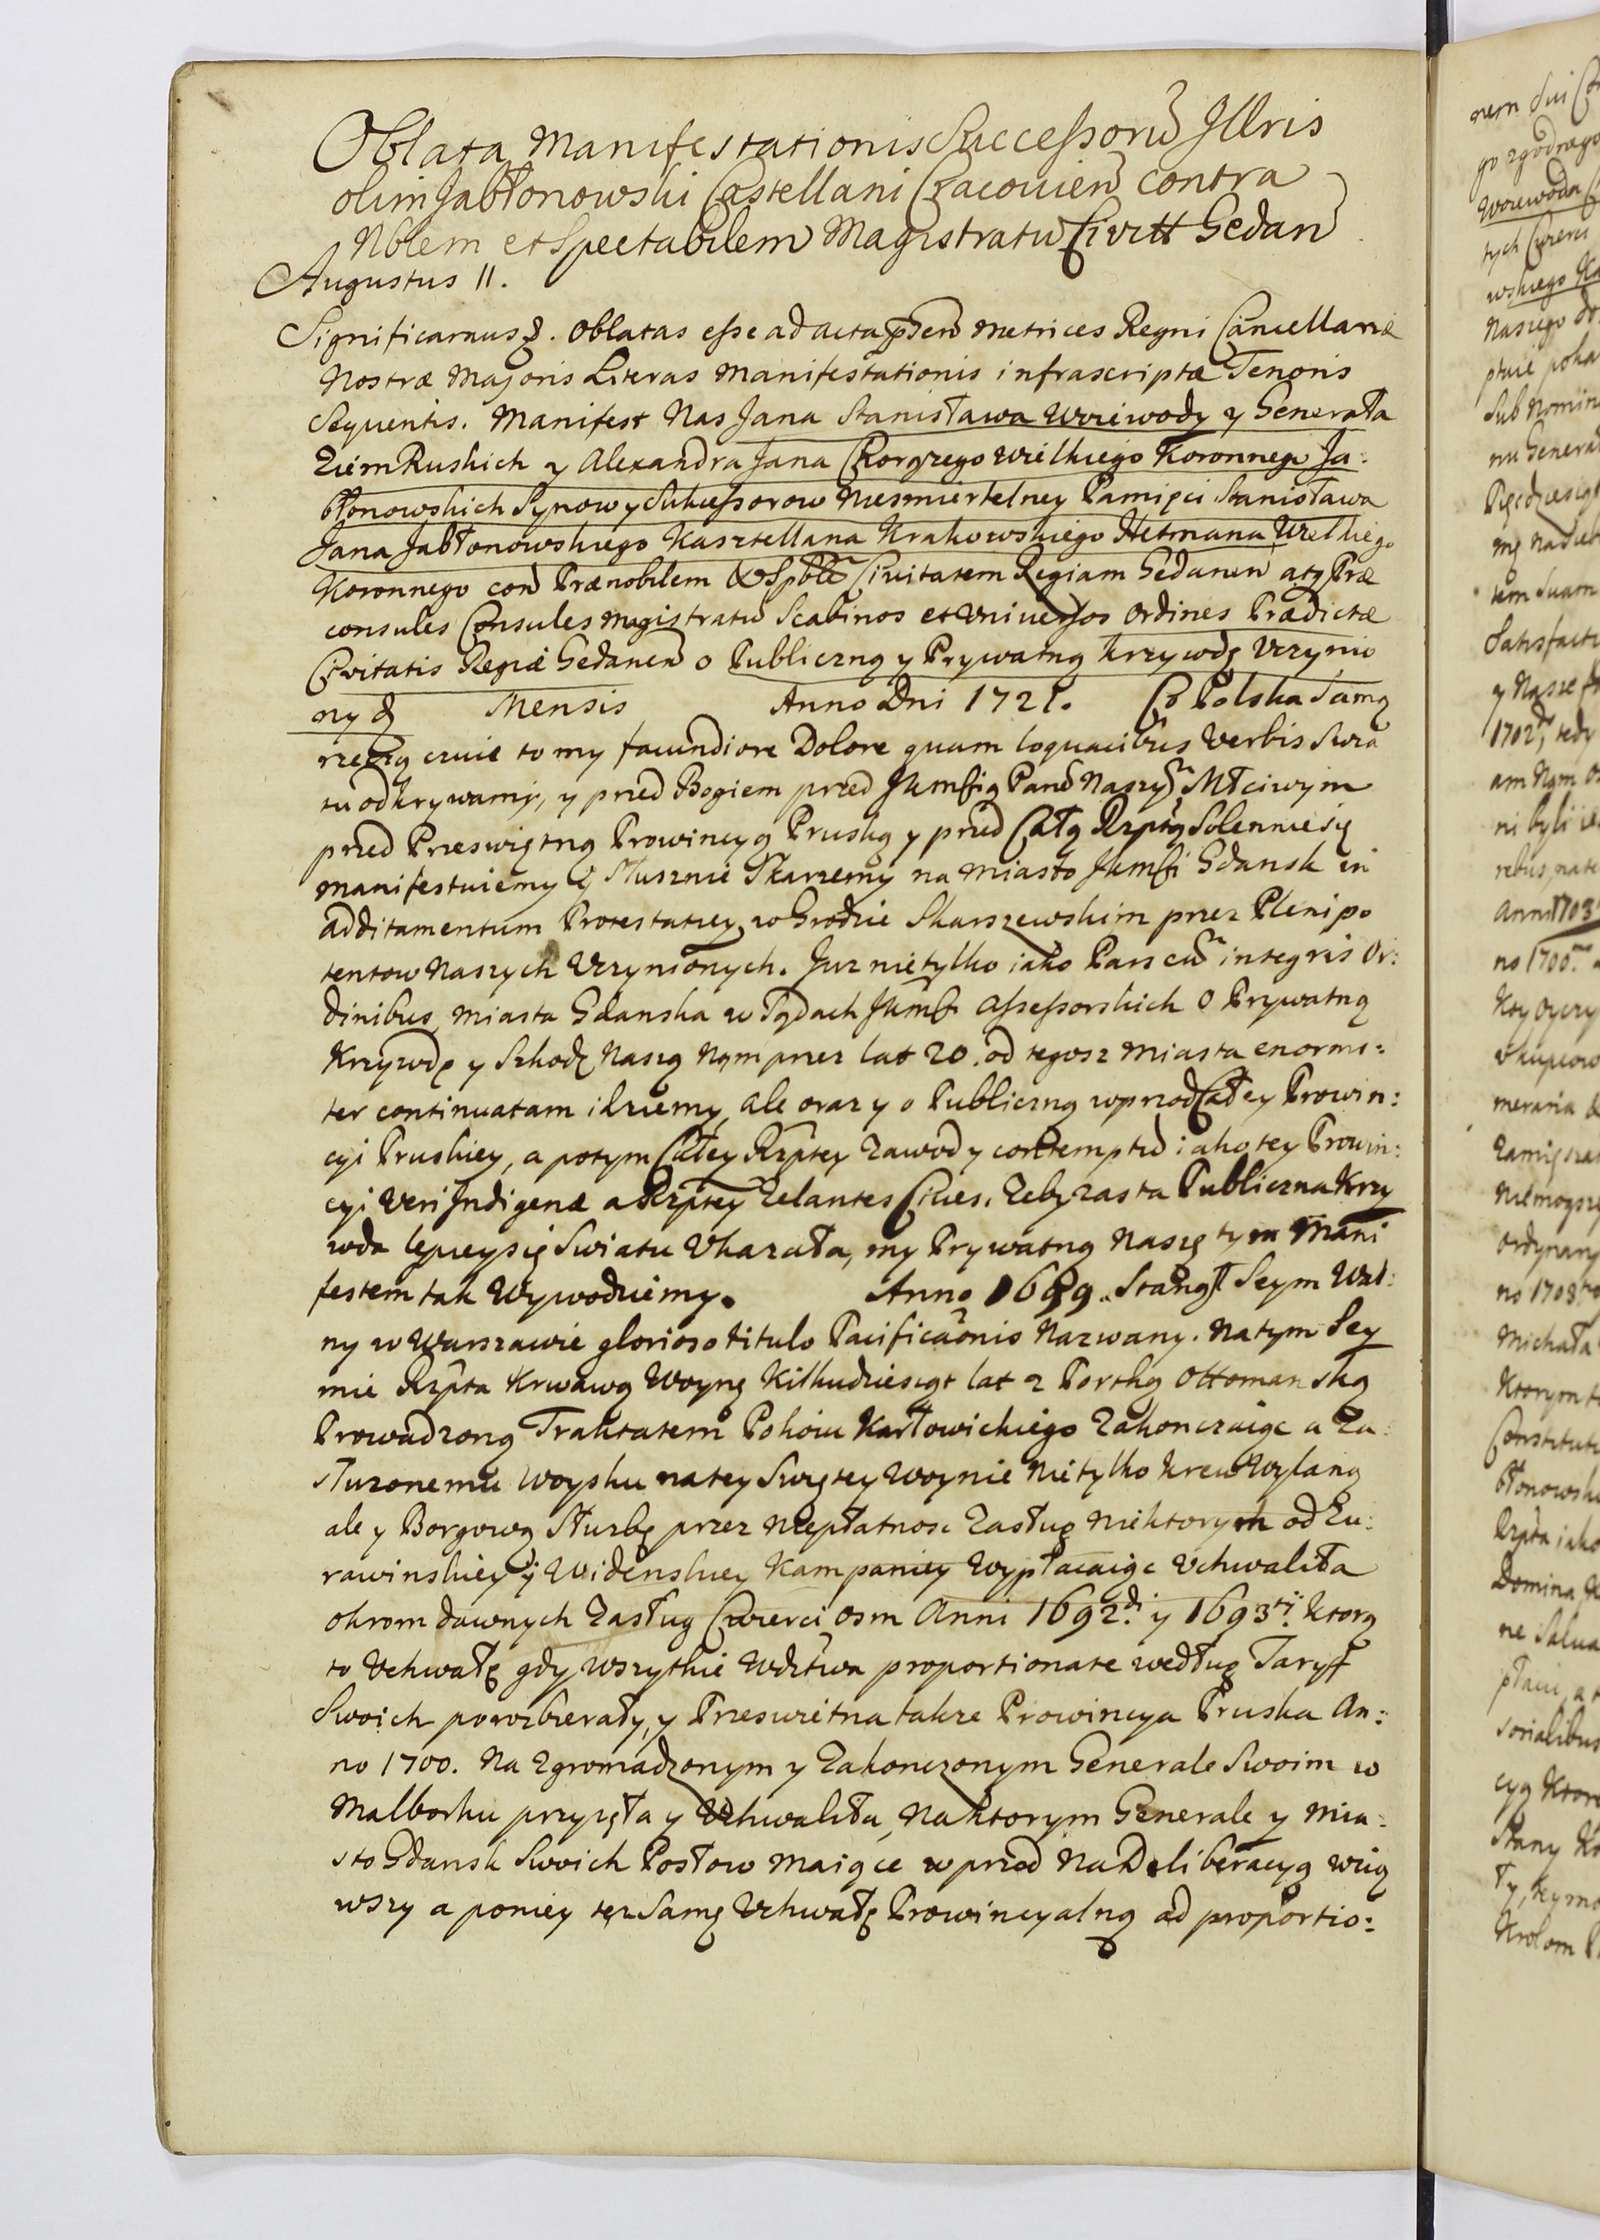 Oblata Manifestationis Successorū Illris
olim Jabłonowski Castellani Cracovien̄ contra
Nblem et Spectabilem Magistratū Civitt Gedan̄
Augustus II.
Significamus &. Oblatas esse ad acta p̄sen̄ Metrices Regni Cancellariæ
Nostræ Majoris Literas Manifestationis infrascriptæ Tenoris
Sequentis. Manifest Nas Jana Stanisława Woiewody y Generała
Ziem Ruskich y Alexandra Jana Chorążego wielkiego Koronnego Ja:
błonowskich Synow y Sukcessorow Niesmiertelney Pamięci Stanisława
Jana Jabłonowskiego Kasztellana Krakowskiego Hetmana Wielkiego
Koronnego con̄ Prænobilem & Spblē Civitatem Regiam Gedanen̄ atq̃ Præ
consules Consules Magistratū Scabinos et Universos Ordines Prædictæ
Civitatis Regiæ Gedanen̄ o Publiczną y Prywatną krzywdę Uczynio
ny & Mensis Anno Dni 1721. Co Polska Samą
rzeczą czuie to my facundiore Dolore quam loquacibus Verbis Swia
tu odkrywamy, y przed Bogiem przed Jkmścią Panē Naszym̄ Młciwym
przed Przeswiętną Prowincyą Pruską y przed Całą Rzptą Solennie się
manifestuiemy y Słusznie Skarzemy na Miasto Jkmści Gdansk in
additamentum Protestacyey w Grodzie Skarszewskim przez Plenipo
tentow Naszych Uczynionych. Juz nietylko iako Pars cum̄ integris Or:
dinibus Miasta Gdanska w Sądach Jkmści Assessorskich o Prywatną
Krzywdę y Szkodę Naszą Nam przez lat 20. od tegosz Miasta enormi:
ter continuatam idziemy, ale oraz y o Publiczną wprzod Całey Prowin:
cyi Pruskiey, a potym Całey Rzptey Zawod y contemptū iako tey Prowin:
cyi Veri Indigenæ a Rzptey Zelantes Cives. Zeby zas ta Publiczna Krzy
wda lepiey się Swiatu Ukazała, my Prywatną Naszę tym Mani
festem tak Wywodziemy. Anno 1699. Stanął Seym Wal:
ny w Warszawie glorioso titulo Pacificaōnis Nazwany. Na tym Sey
mie Rzpta Krwawą Woynę Kilkudziesiąt lat z Portką Ottomanską
Prowadzoną Traktatem Pokoiu Karłowickiego Zakonczaiąc a Za:
słuzonemu Woysku na tey Swiętey Woynie nietylko krew Wylaną
ale y Borgową Słuzbę przez Niepłatnosc Zasług niektorych od Zu:
rawinskiey y Widenskiey Kampaniey Wypłacaiąc Uchwaliła
okrom dawnych Zasług Cwierci osm Anni 1692di y 1693tii. Ktorą
to Uchwałę gdy Wszytkie Wdztwa proportionate według Taryff
Swoich porozbierały, y Przeswietna takze Prowincya Pruska An:
no 1700. Na Zgromadzonym y Zakonczonym Generale Swoim w
Malborku przyięła y Uchwaliła, Na ktorym Generale y Mia:
sto Gdansk Swoich Posłow Maiące wprzod Na Deliberacyą wzią
wszy a poniey tęz Samę Uchwałę Prowincyalną ad proportio: